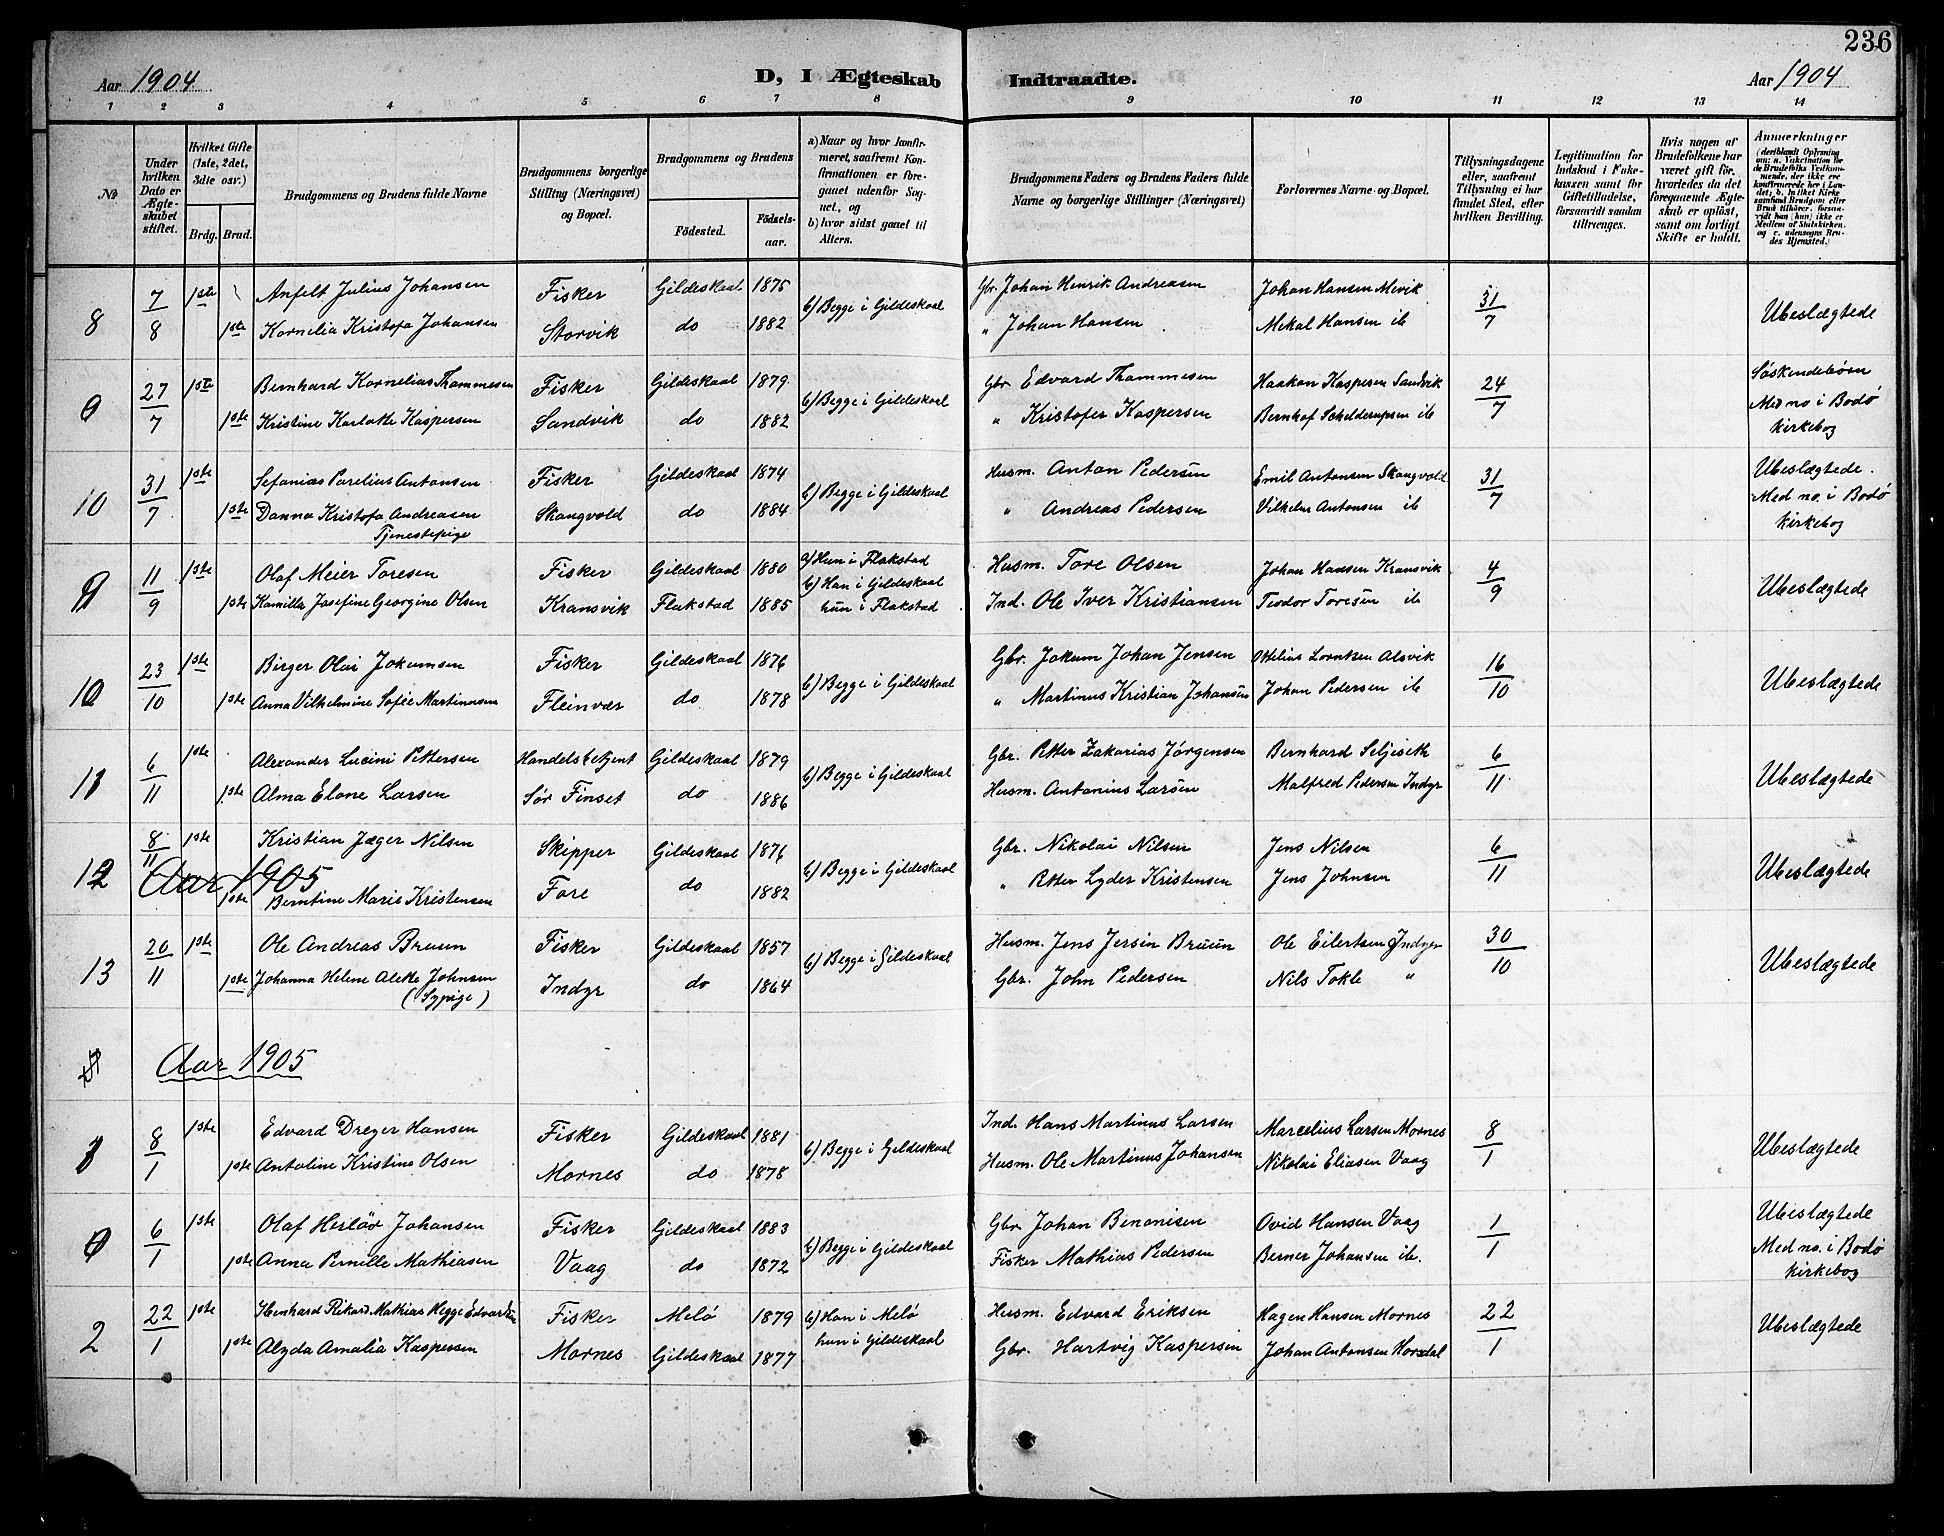 236
Aar 1904
D, I Ægteskab Indtraadte.
Aar 1904
1 2 3 4 5 6 7 8 9 10 11 12 13 14
No
Under hvilken Dato er Ægteskabet stiftet.
Hvilket Gifte (1ste, 2det, 3die osv.)
Brdg. Brud.
Brudgommens og Brudens fulde Navne
Brudgommens borgerlige Stilling (Næringsvei) og Bopæl.
Brudgommens og Brudens
Fødested. Fødselsaar.
a) Naar og hvor konfirmeret, saafremt Konfirmationen er foregaaet udenfor Sognet, og
b) hvor sidst gaaet til Alters.
Brudgommens Faders og Brudens Faders fulde Navne og borgerlige Stillinger (Næringsvei)
Forlovernes Navne og Bopæl.
Tillysningsdagene eller, saafremt Tillysning ei har fundet Sted, efter hvilken Bevilling.
Legitimation for Indskud i Fakekassen samt for Giftetilladelse, forsaavidt saadan tiltrænges.
Hvis nogen af Brudefolkene har været gift før, hvorledes da det foregaaende Ægteskab er opløst, samt om lovligt Skifte er holdt.
Anmærkninger (deriblandt Oplysning om: a. Vakcination for de Brudefolks Vedkommende, der ikke ere konfirmerede her i Landet; b. hvilket Kirkesamfund Brudgom eller Brud tilhører, forsaavidt han (hun) ikke er Medlem af Statskirken, og c. udensogns Brudes Hjemsted.)
8 7/8 1ste Anfelt Julius Johansen Fisker Gildeskaal 1875 b) Begge i Gildeskaal Gbr. Johan Henrik Andreasen Johan Hansen Mevik 31/7 Ubeslægtede
1ste Kornelia Kristofa Johansen Storvik do 1882 " Johan Hansen Mekal Hansen ib
9 27/7 1ste Bernhard Kornelius Thommesen Fisker Gildeskaal 1879 b) Begge i Gildeskaal Gbr Edvard Thommesen Haakon Kaspersen Sandvik 24/7 Søskendebørn
1ste Kristine Karlotte Kaspersen Sandvik do 1882 " Kristofer Kaspersen Bernhof Schelderupsen ib Med no i Bodø kirkebog
10 31/7 1ste Sefanias Parelius Antonsen Fisker Gildeskaal 1874 b) Begge i Gildeskaal Husm. Anton Pedersen Emil Antonsen Skaugvold 31/7 Ubeslægtede.
1ste Danna Kristofa Andreasen Skaugvold do 1884 " Andreas Pedersen Vilhelm Antonsen ib Med no. i Bodø kirkebog
Tjenestepige
11/9 1ste Olaf Meier Toresen Fisker Gildeskaal 1880 a) Hun i Flakstad Husm. Tore Olsen Johan Hansen Kransvik 4/9 Ubeslægtede
b) Han i Gildeskaal
1ste Kamilla Josefine Georgine Olsen Kransvik Flakstad 1885 hun i Flakstad Ind. Ole Iver Kristiansen Teodor Toresen ib
10 23/10 1ste Birger Olai Jokumsen Fisker Gildeskaal 1876 b) Begge i Gildeskaal Gbr. Jokum Johan Jensen Ottelius Lorntzen Alsvik 16/10 Ubeslægtede
1ste Anna Vilhelmine Sofie Martinussen Fleinvær do 1878 " Martinus Kristian Johansen Johan Pedersen ib
11 6/11 1ste Alexander Lucini Pettersen Handelsbetjent Gildeskaal 1879 b) Begge i Gildeskaal Gbr. Petter Zakarias Jørgensen Bernhard Seljeseth 6/11 Ubeslægtede
1ste Alma Elone Larsen Sør Finset do 1886 Husm. Antonius Larsen Malfred Pedersen Indyr
12 8/11 1ste Kristian Jæger Nilsen Skipper Gildeskaal 1876 b) Begge i Gildeskaal Gbr. Nikolai Nilsen Jens Nilsen 6/11 Ubeslægtede
Aar 1905
1ste Berntine Marie Kristensen Fore do 1882 " Petter Lyder Kristensen Jens Johnsen
13 20/11 1ste Ole Andreas Bruun Fisker Gildeskaal 1857 b) Begge i Gildeskaal Husm. Jens Jersin Bruun Ole Eilertsen Indyr 30/10 Ubeslægtede
1ste Johanna Helene Alette Johnsen Indyr do 1864 Gbr. John Pedersen Nils Tokle "
(Sypige)
Aar 1905
8/1 1ste Edvard Dreyer Hansen Fisker Gildeskaal 1881 b) Begge i Gildeskaal Ind. Hans Martinus Larsen Marcelius Larsen Mornes 8/1 Ubeslægtede
1ste Antoline Kristine Olsen Mornes do 1878 Husm. Ole Martinus Johansen Nikolai Eliasen Vaag
6/1 1ste Olaf Herløv Johansen Fisker Gildeskaal 1883 b) Begge i Gildeskaal Gbr. Johan Benonisen Ovid Hansen Vaag 1/1 Ubeslægtede
1ste Anna Pernille Mathiasen Vaag do 1872 Fisker Mathias Pedersen Berner Johansen ib. Med no. i Bodø kirkebog
2 22/1 1ste Henhard Rikard Mathias Hegge Edvardsen Fisker Melø 1879 b) Han i Melø Husm. Edvard Eriksen Hagen Hansen Mornes 22/1 Ubeslægtede
1ste Alyda Amalia Kaspersen Mornes Gildeskaal 1877 hun i Gildeskaal Gbr. Hartvig Kaspersen Johan Antonsen Horsdal